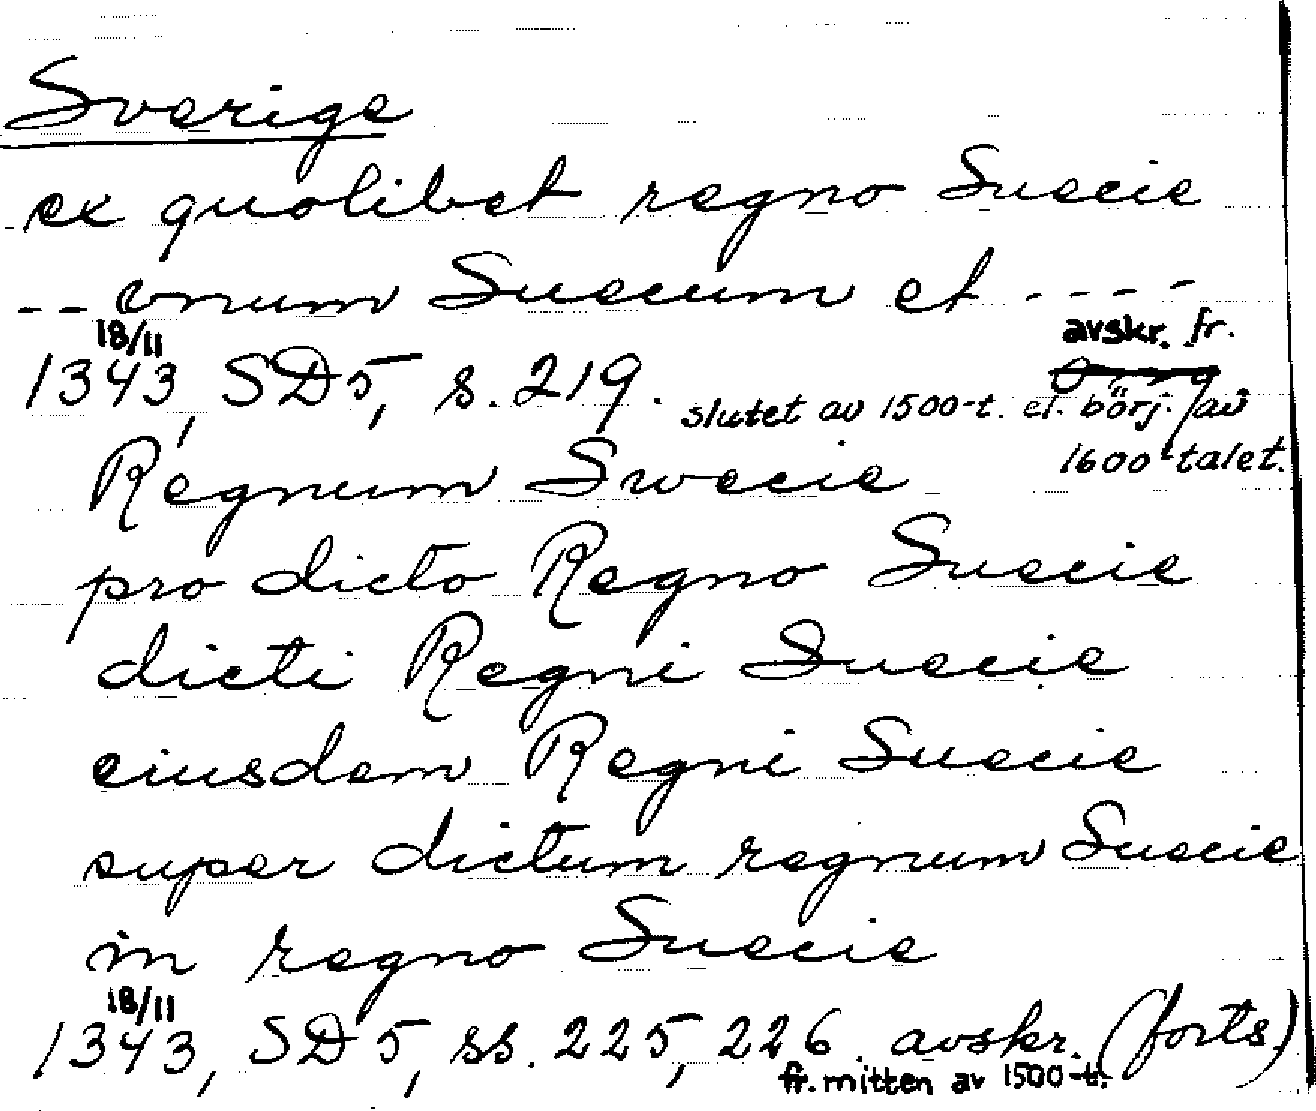 Sverige
ex quolibet regno Suecie
-- vnum Suecum et ----
18/11 avskr. fr.
1343, SD 5, s. 219. slutet av 1500-t. el. börj. av
1600-talet.
Regnum Swecie
pro dicto Regno Suecie
dicti Regni Suecie
eiusdem Regni Suecie
super dictum regnum Suecie
in regno Suecie
18/11
1343, SD 5, ss. 225, 226. avskr. (forts)
fr. mitten av 1500-t.